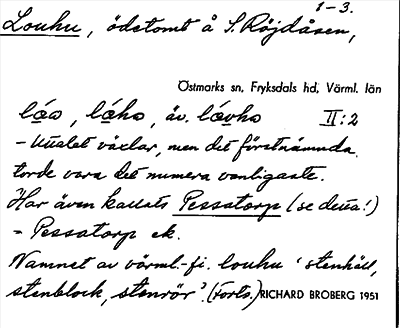 1-3.
Louhu, ödetomt å S. Röjdåsen,
Östmarks sn, Fryksdals hd, Värml. län
låo, låho, äv. låvho II:2
- Uttalet växlar, men det förstnämnda
torde vara det numera vanligaste.
Har även kallats Pessatorp (se detta!)
- Pessatorp ek.
Namnet av värml.-fi. louhu 'stenhäll,
stenblock, stenrör'. (Forts.) RICHARD BROBERG 1951